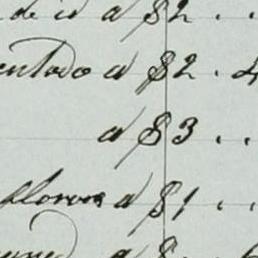 de id a $2 . .
entado a $2 . 4
a $3 . .
flores a $1 . .
a $